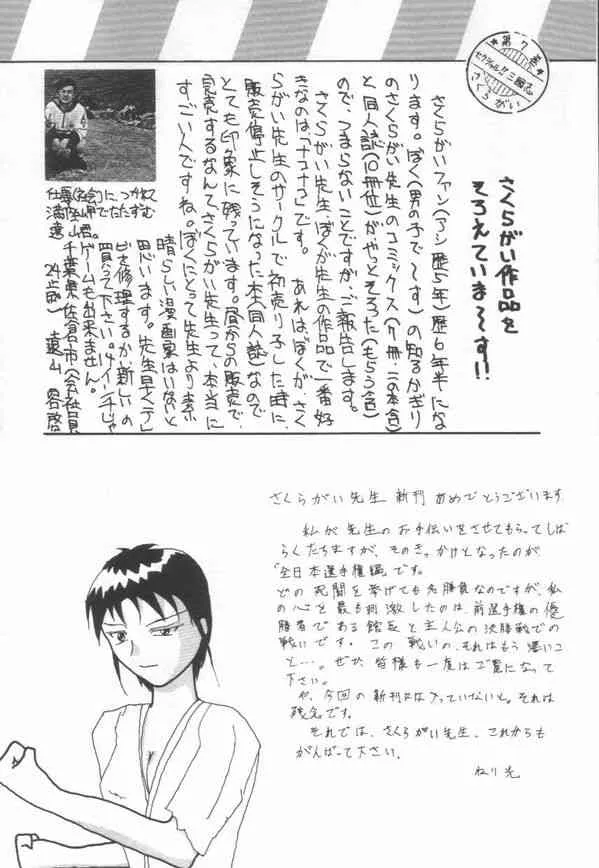 ★第7巻★
セクシャル伝三國志
さくらがい
さくらがい作品を
そろえていま～す!!
さくらがいファン(アシ歴5年)歴6年半にな
ります。ぼく(男の子で～す)の知るかぎり
のさくらがい先生のコミックス(9冊・二の本含)
と同人誌(10冊位)がやっとそろった(もらう含)
ので、つまらないことですが、ご報告します。
さくらがい先生、ぼくが先生の作品で一番好
きなのは、「ナコナコ」です。あれはぼくが、さく
らがい先生のサークルで初売り子した時に、
販売停止しそうになった本(同人誌)なので
とても印象に残っています。昼からの販売で、
完売するなんて、さくらがい先生って、本当に
すごい人ですね。ぼくにとって先生より素
晴らしい漫画家はいないと
思います。先生早くテレ
ビを修理するか、新しいの
買って下さい。
ゲームも出来ません。
千葉県佐倉市(会社員
24歳) 遠山
さくらがい先生 新刊 おめでとうございます
私が先生のお手伝いをさせてもらってしば
らくたちますが、そのきっかけとなったのが
「全日本選手権編」です。
どの死闘を挙げても名勝負なのですが、私
の心を最も刺激したのは、前選手権の優
勝者である館長と主人公の決勝戦での
戦いです。この戦いの、それはもう凄いこ
と…。ぜひ、皆様も一度はご覧になって
下さい。
や、今回の新刊には入っていないと。それは
残念です。
それでは、さくらがい先生、これからも
がんばって下さい。
ねり光